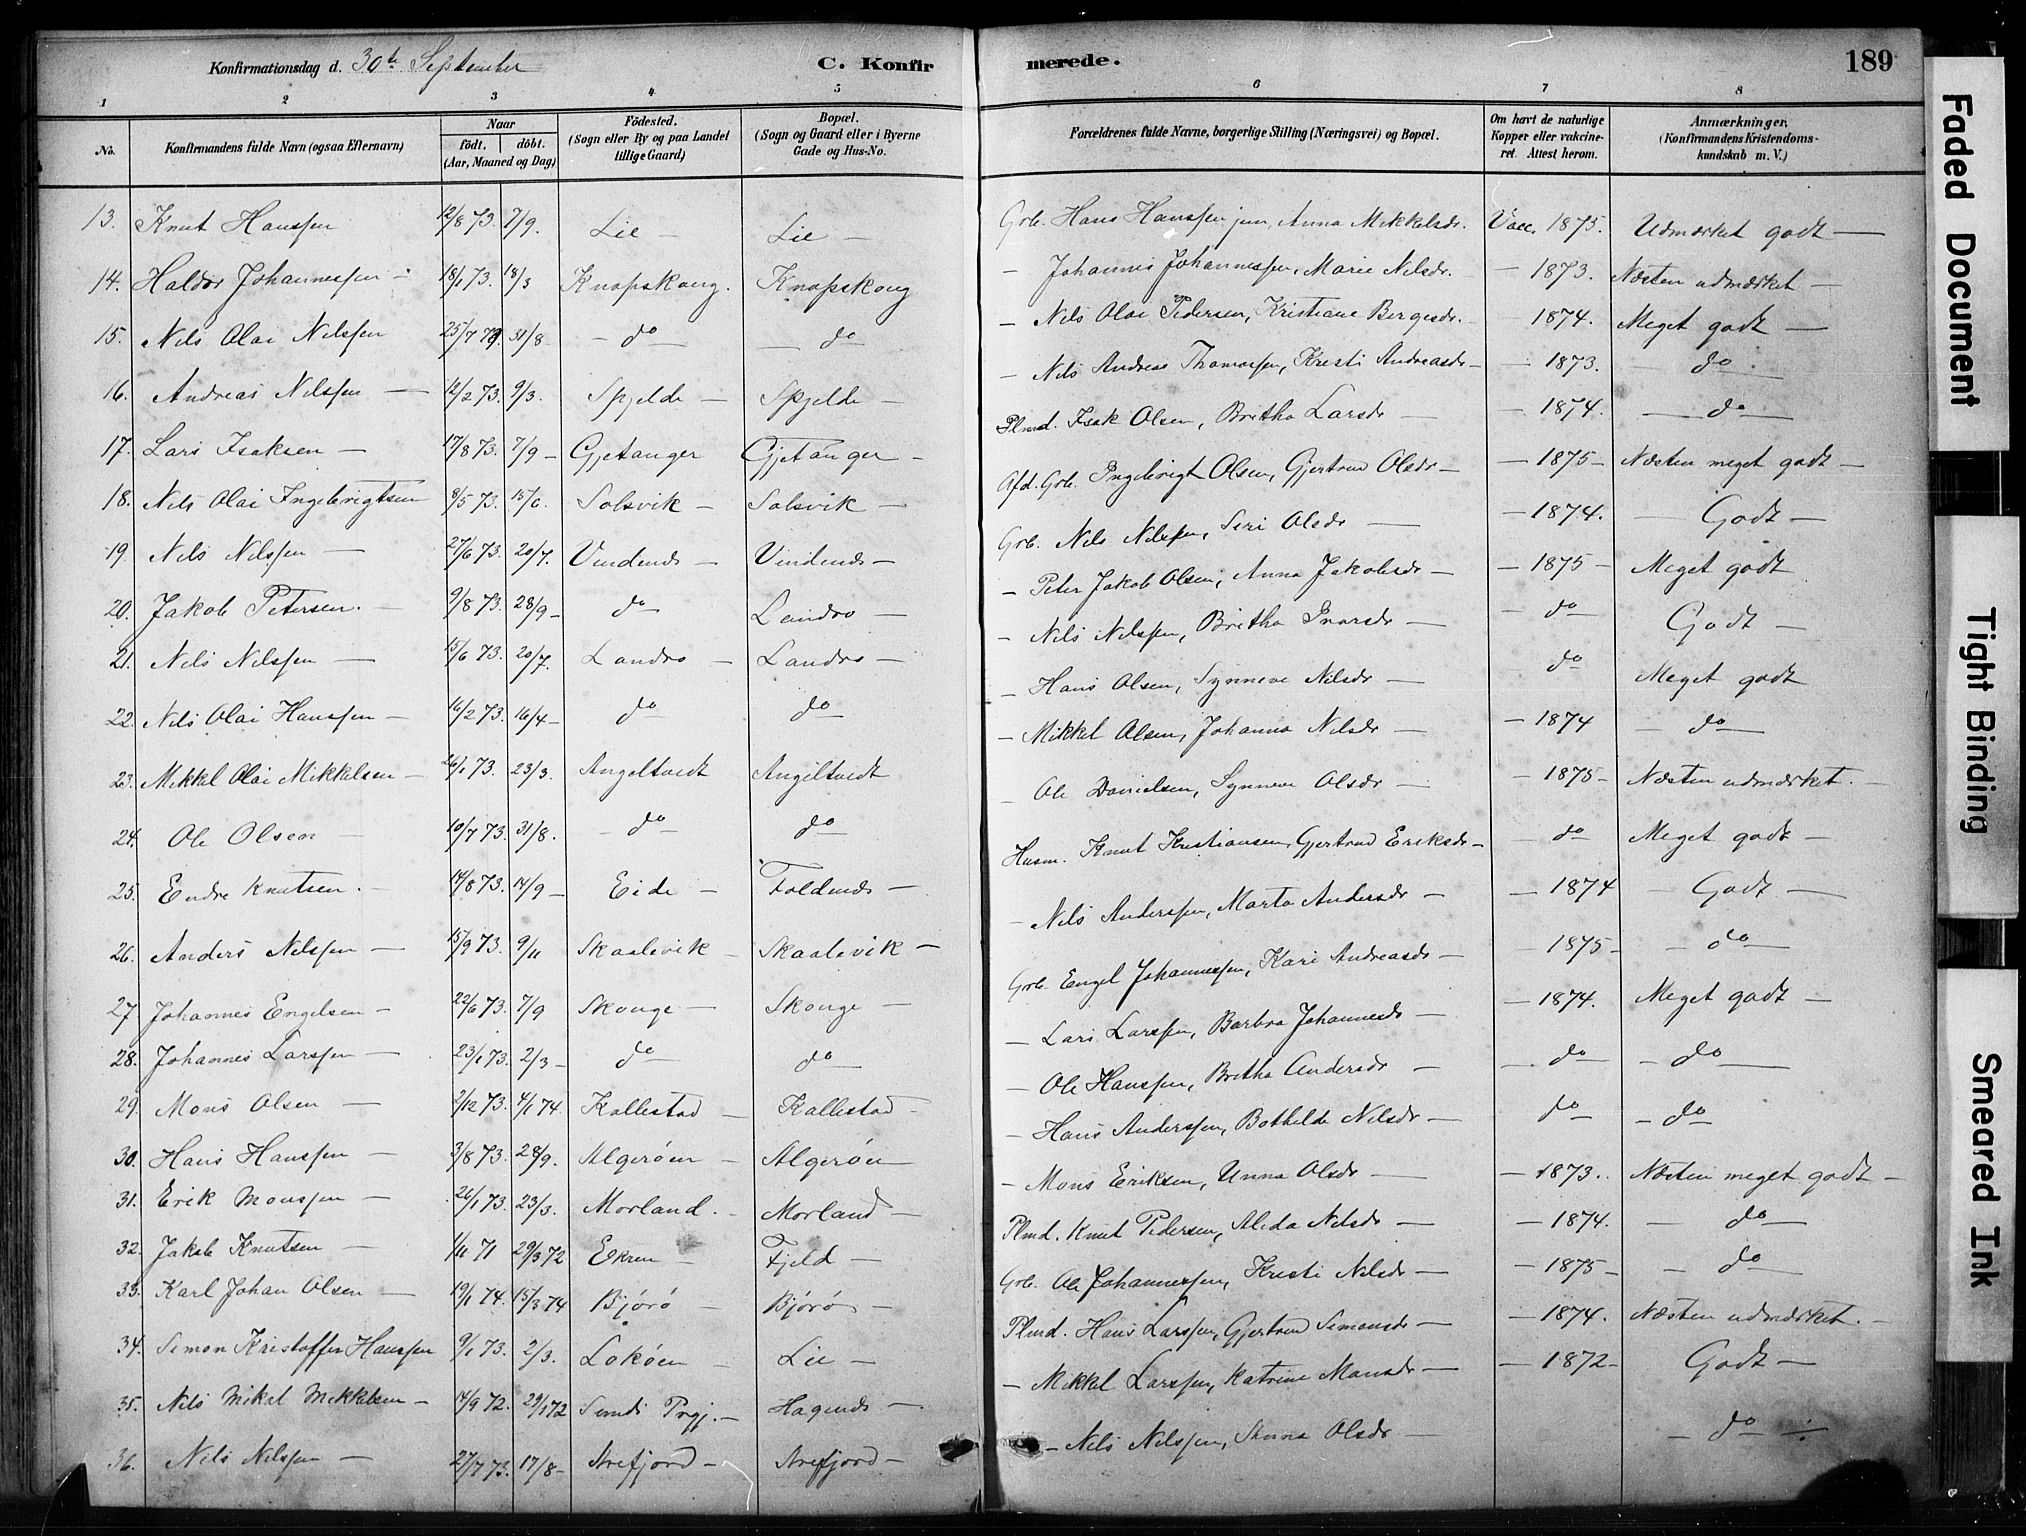 Konfirmationsdag d. 30te September C. Konfir merede. 189
1 2 3 4 5 6 7 8
No. Konfirmandens fulde Navn (ogsaa Efternavn) Naar födt. döbt. (Aar, Maaned og Dag) Födested. (Sogn eller By og paa Landet tillige Gaard) Bopæl. (Sogn og Gaard eller i Byerne Gade og Hus-No. Forældrenes fulde Navne, borgerlige Stilling (Næringsvei) og Bopæl. Om havt de naturlige Kopper eller vakcineret. Attest herom. Anmærkninger, (Konfirmandens Kristendomskundskab m. V.)
13. Knut Hanssen 12/8 73. 7/9. Lie — Lie — Grb. Hans Hanssen jun, Anna Mikkelsdr. Vacc. 1875. Udmærket godt —
14. Haldor Johannessen — 18/1 73. 18/3 Knapskoug. Knapskoug — Johannes Johannessen, Marie Nilsdr. — 1873. Næsten udmærket —
15. Nils Olai Nilssen 25/7 79. 31/8 — do — do — Nils Olai Pedersen, Kristiane Bergesdr. — 1874. Meget godt —
16. Andreas Nilssen — 12/2 73. 9/3. Spjelde — Spjelde — — Nils Andreas Thomassen, Kristi Andreasdr — — 1873. — do
17. Lars Isaksen — 17/8 73. 7/9 — Gjetanger Gjetanger — Plmd. Isak Olsen, Britha Larsdr — — 1874. — do —
18. Nils Olai Ingebrigtsen 8/5 73. 15/6. Solsvik — Solsvik — Afd. Grb. Ingebrigt Olsen, Gjertrud Olsdr — — 1875 — Næsten meget godt —
19. Nils Nilssen — 27/6 73. 20/7. Vindenes — Vindenes — Grb. Nils Nilssen, Siri Olsdr — — 1874. — Godt —
20. Jakob Petersen. — 9/8 73. 28/9 — do Landro — — Peter Jakob Olsen, Anna Jakobsdr — — 1875 — Meget godt
21. Nils Nilssen — 15/6 73. 20/7. Landro — Landro — — Nils Nilssen, Britha Ivarsdr — — do Godt —
22. Nils Olai Hanssen — 16/2 73. 16/4 — do do — Hans Olsen, Synneve Nilsdr — do Meget godt
23. Mikkel Olai Mikkelsen — 26/1 73. 23/3. Angeltvedt Angeltvedt — Mikkel Olsen, Johanna Nilsdr — — 1874 — do
24. Ole Olsen — 10/7 73. 31/8. — do do — Ole Danielsen, Synneve Olsdr — — 1875 — Næsten udmærket. —
25. Endre Knutsen. — 14/8 73. 14/9 — Eide — Foldenes — Husm. Knut Kristiansen, Gjertrud Eriksdr — — do Meget godt —
26. Anders Nilssen — 15/9 73. 9/11 Skaalevik Skaalevik — — Nils Anderssen, Marta Andersdr — — 1874 — Godt —
27 Johannes Engelsen — 22/6 73. 7/9 Skouge — Skouge — Grb. Engel Johannessen, Kari Andreasdr — — 1875 — — do
28. Johannes Larssen — 23/1 73. 2/3 — do do — Lars Larssen, Barbra Johannesdr — — 1874. Meget godt —
29. Mons Olsen — 2/12 73. 4/1 74. Kallestad — Kallestad — — Ole Hanssen, Britha Andersdr — — do — do
30. Hans Hanssen — 3/8 73. 28/9. Algerøen — Algerøen — Hans Anderssen, Bothilde Nilsdr — do — do
31. Erik Monssen — 26/1 73. 23/3. Morland. — Morland — — Mons Eriksen, Unna Olsdr — — 1873. Næsten meget godt —
32. Jakob Knutsen — 1/11 71 29/3 72 Ekren — Fjeld — Plmd. Knut Pedersen, Alida Nilsdr — — 1874. — do
33. Karl Johan Olsen — 19/1 74. 15/3 74 Bjørø — Bjørø — Grb. Ole Johannessen, Kristi Nilsdr — — 1875 — — do
34. Simon Kristoffer Hanssen 9/1 73. 2/3. Lokøen — Lie — Plmd. Hans Larssen, Gjertrud Simonsdr — — 1874. Næsten udmærket. —
35. Nils Mikal Mikkelsen — 14/9 72. 29/1 72 Sunds Prgj. — Hagenes — — Mikkel Larssen, Katrine Monsdr — — 1872 — Godt —
36. Nils Nilssen — 27/7 73. 17/8 — Arefjord — Arefjord — — Nils Nilssen, Anna Olsdr — — do —
Faded Document
Tight Binding
Smeared Ink